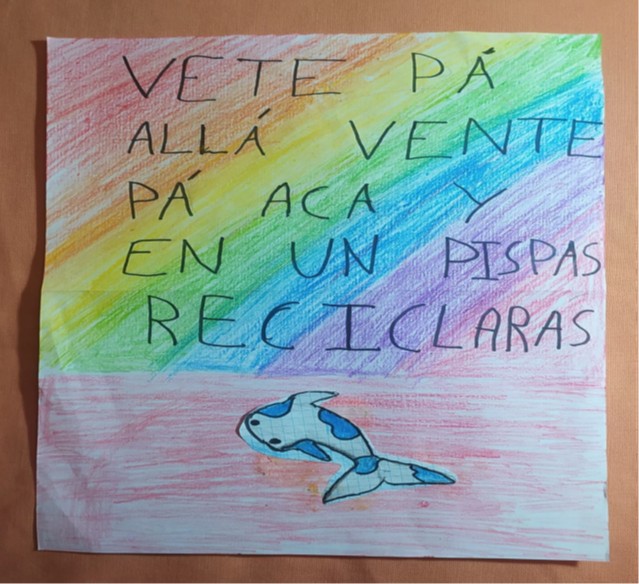 VETE PÁ
ALLÁ VENTE
PÁ ACA Y
EN UN PISPAS
RECICLARAS